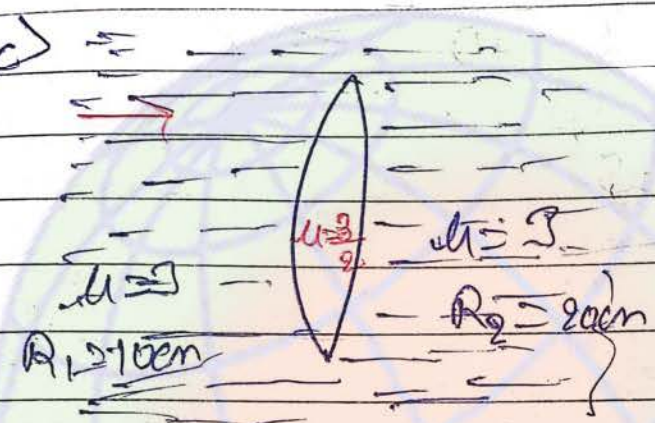 c)
μ=3/2
μ=3
μ=3
R₁=10cm
R₂=20cm